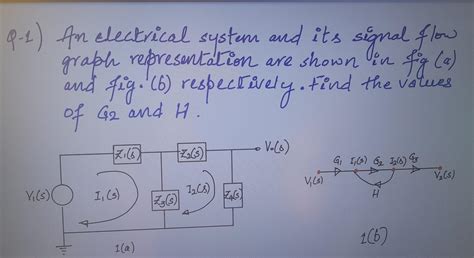 Q-1) An electrical system and its signal flow
graph representation are shown in fig (a)
and fig. (b) respectively. Find the values
of G2 and H.
Z1(s) Z2(s) V0(s)
V1(s) I1(s) Z3(s) I2(s) Z4(s)
G1 I1(s) G2 I2(s) G3
V1(s) H V2(s)
1(a) 1(b)